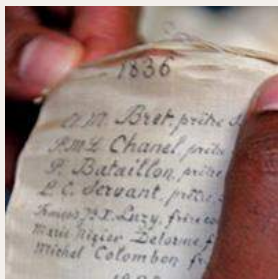 1836
C. M. Bret, prêtre
P. M. L. Chanel, prêtre
P. Bataillon, prêtre
L. C. Servant, prêtre,
Luzy, frère
Marie Nizier Delorme, f
Michel Colombon fr